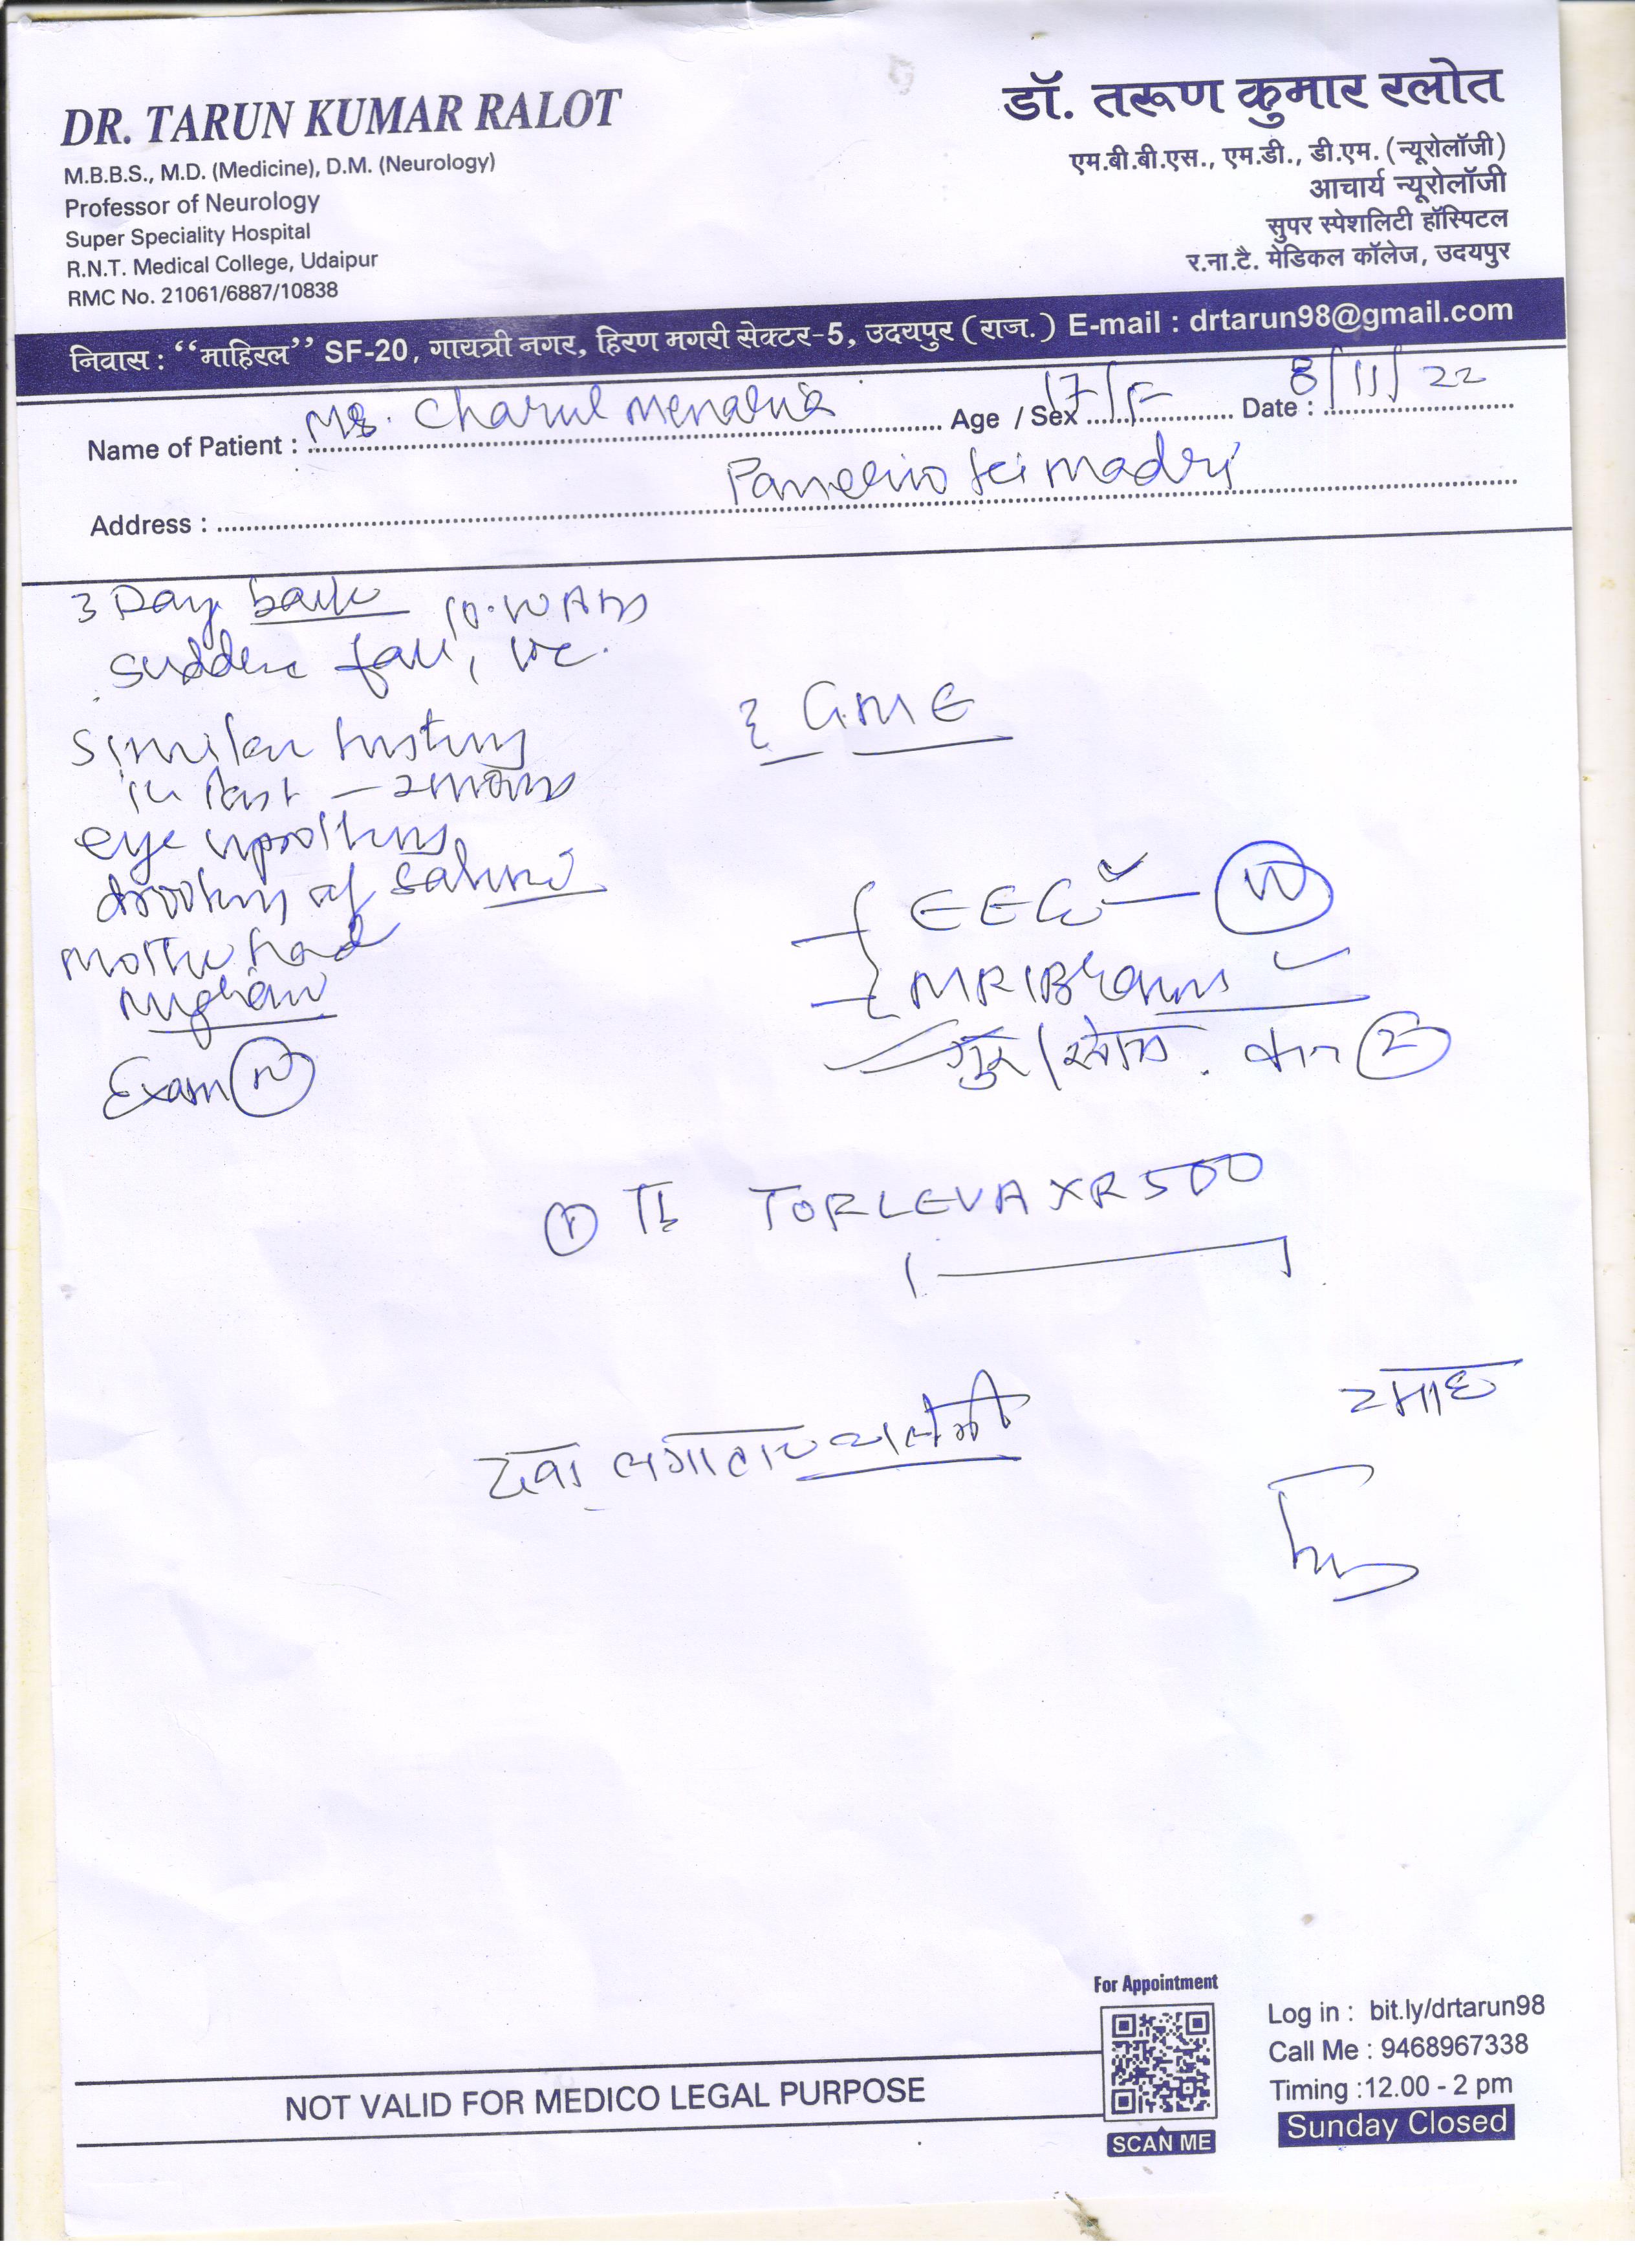 DR. TARUN KUMAR RALOT
M.B.B.S., M.D. (Medicine), D.M. (Neurology)
Professor of Neurology
Super Speciality Hospital
R.N.T. Medical College, Udaipur
RMC No. 21061/6887/10838
डॉ. तरूण कुमार रलोत
एम.बी.बी.एस., एम.डी., डी.एम. (न्यूरोलॉजी)
आचार्य न्यूरोलॉजी
सुपर स्पेशलिटी हॉस्पिटल
र.ना.टै. मेडिकल कॉलेज, उदयपुर
निवास : “माहिरल” SF-20, गायत्री नगर, हिरण मगरी सेक्टर-5, उदयपुर (राज.) E-mail : drtarun98@gmail.com
Name of Patient : Ms. Charul Menaria Age / Sex 17/F Date : 8/11/22
Address :
3 Day back
sudden fall,
similar history
in past
eye uprolling
drooling of saliva
mother had
Exam N
? GME
EEG N
MRI Brain
① TORLEVA XR 500
दवा लगातार चलेगी
2 माह
For Appointment
SCAN ME
Log in : bit.ly/drtarun98
Call Me : 9468967338
Timing :12.00 - 2 pm
Sunday Closed
NOT VALID FOR MEDICO LEGAL PURPOSE